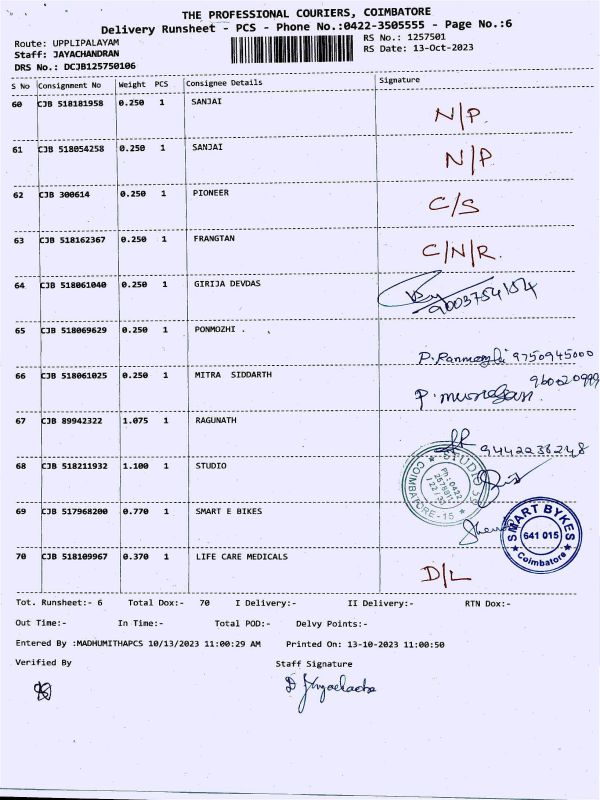 THE PROFESSIONAL COURIERS, COIMBATORE
Delivery Runsheet - PCS - Phone No.:0422-3505555 - Page No.:6
Route: UPPLIPALAYAM
RS No.: 1257501
Staff: JAYACHANDRAN
RS Date: 13-Oct-2023
DRS No.: DCJB125750106
S No Consignment No Weight PCS Consignee Details Signature
60 CJB 518181958 0.250 1 SANJAI N/P.
61 CJB 518054258 0.250 1 SANJAI N/P
62 CJB 300614 0.250 1 PIONEER C/S
63 CJB 518162367 0.250 1 FRANGTAN C/N/R.
64 CJB 518061040 0.250 1 GIRIJA DEVDAS 9003754154
65 CJB 518069629 0.250 1 PONMOZHI . P. Ponmozhi 9750945000
66 CJB 518061025 0.250 1 MITRA SIDDARTH P. murugan.
67 CJB 89942322 1.075 1 RAGUNATH 9442238248
68 CJB 518211932 1.100 1 STUDIO
STUDIO
COIMBATORE-15
Ph: 0422
69 CJB 517968200 0.770 1 SMART E BIKES
SMART BYKES
641 015
Coimbatore
70 CJB 518109967 0.370 1 LIFE CARE MEDICALS D/L
Tot. Runsheet:- 6 Total Dox:- 70 I Delivery:- II Delivery:- RTN Dox:-
Out Time:- In Time:- Total POD:- Delvy Points:-
Entered By :MADHUMITHAPCS 10/13/2023 11:00:29 AM Printed On: 13-10-2023 11:00:50
Verified By Staff Signature